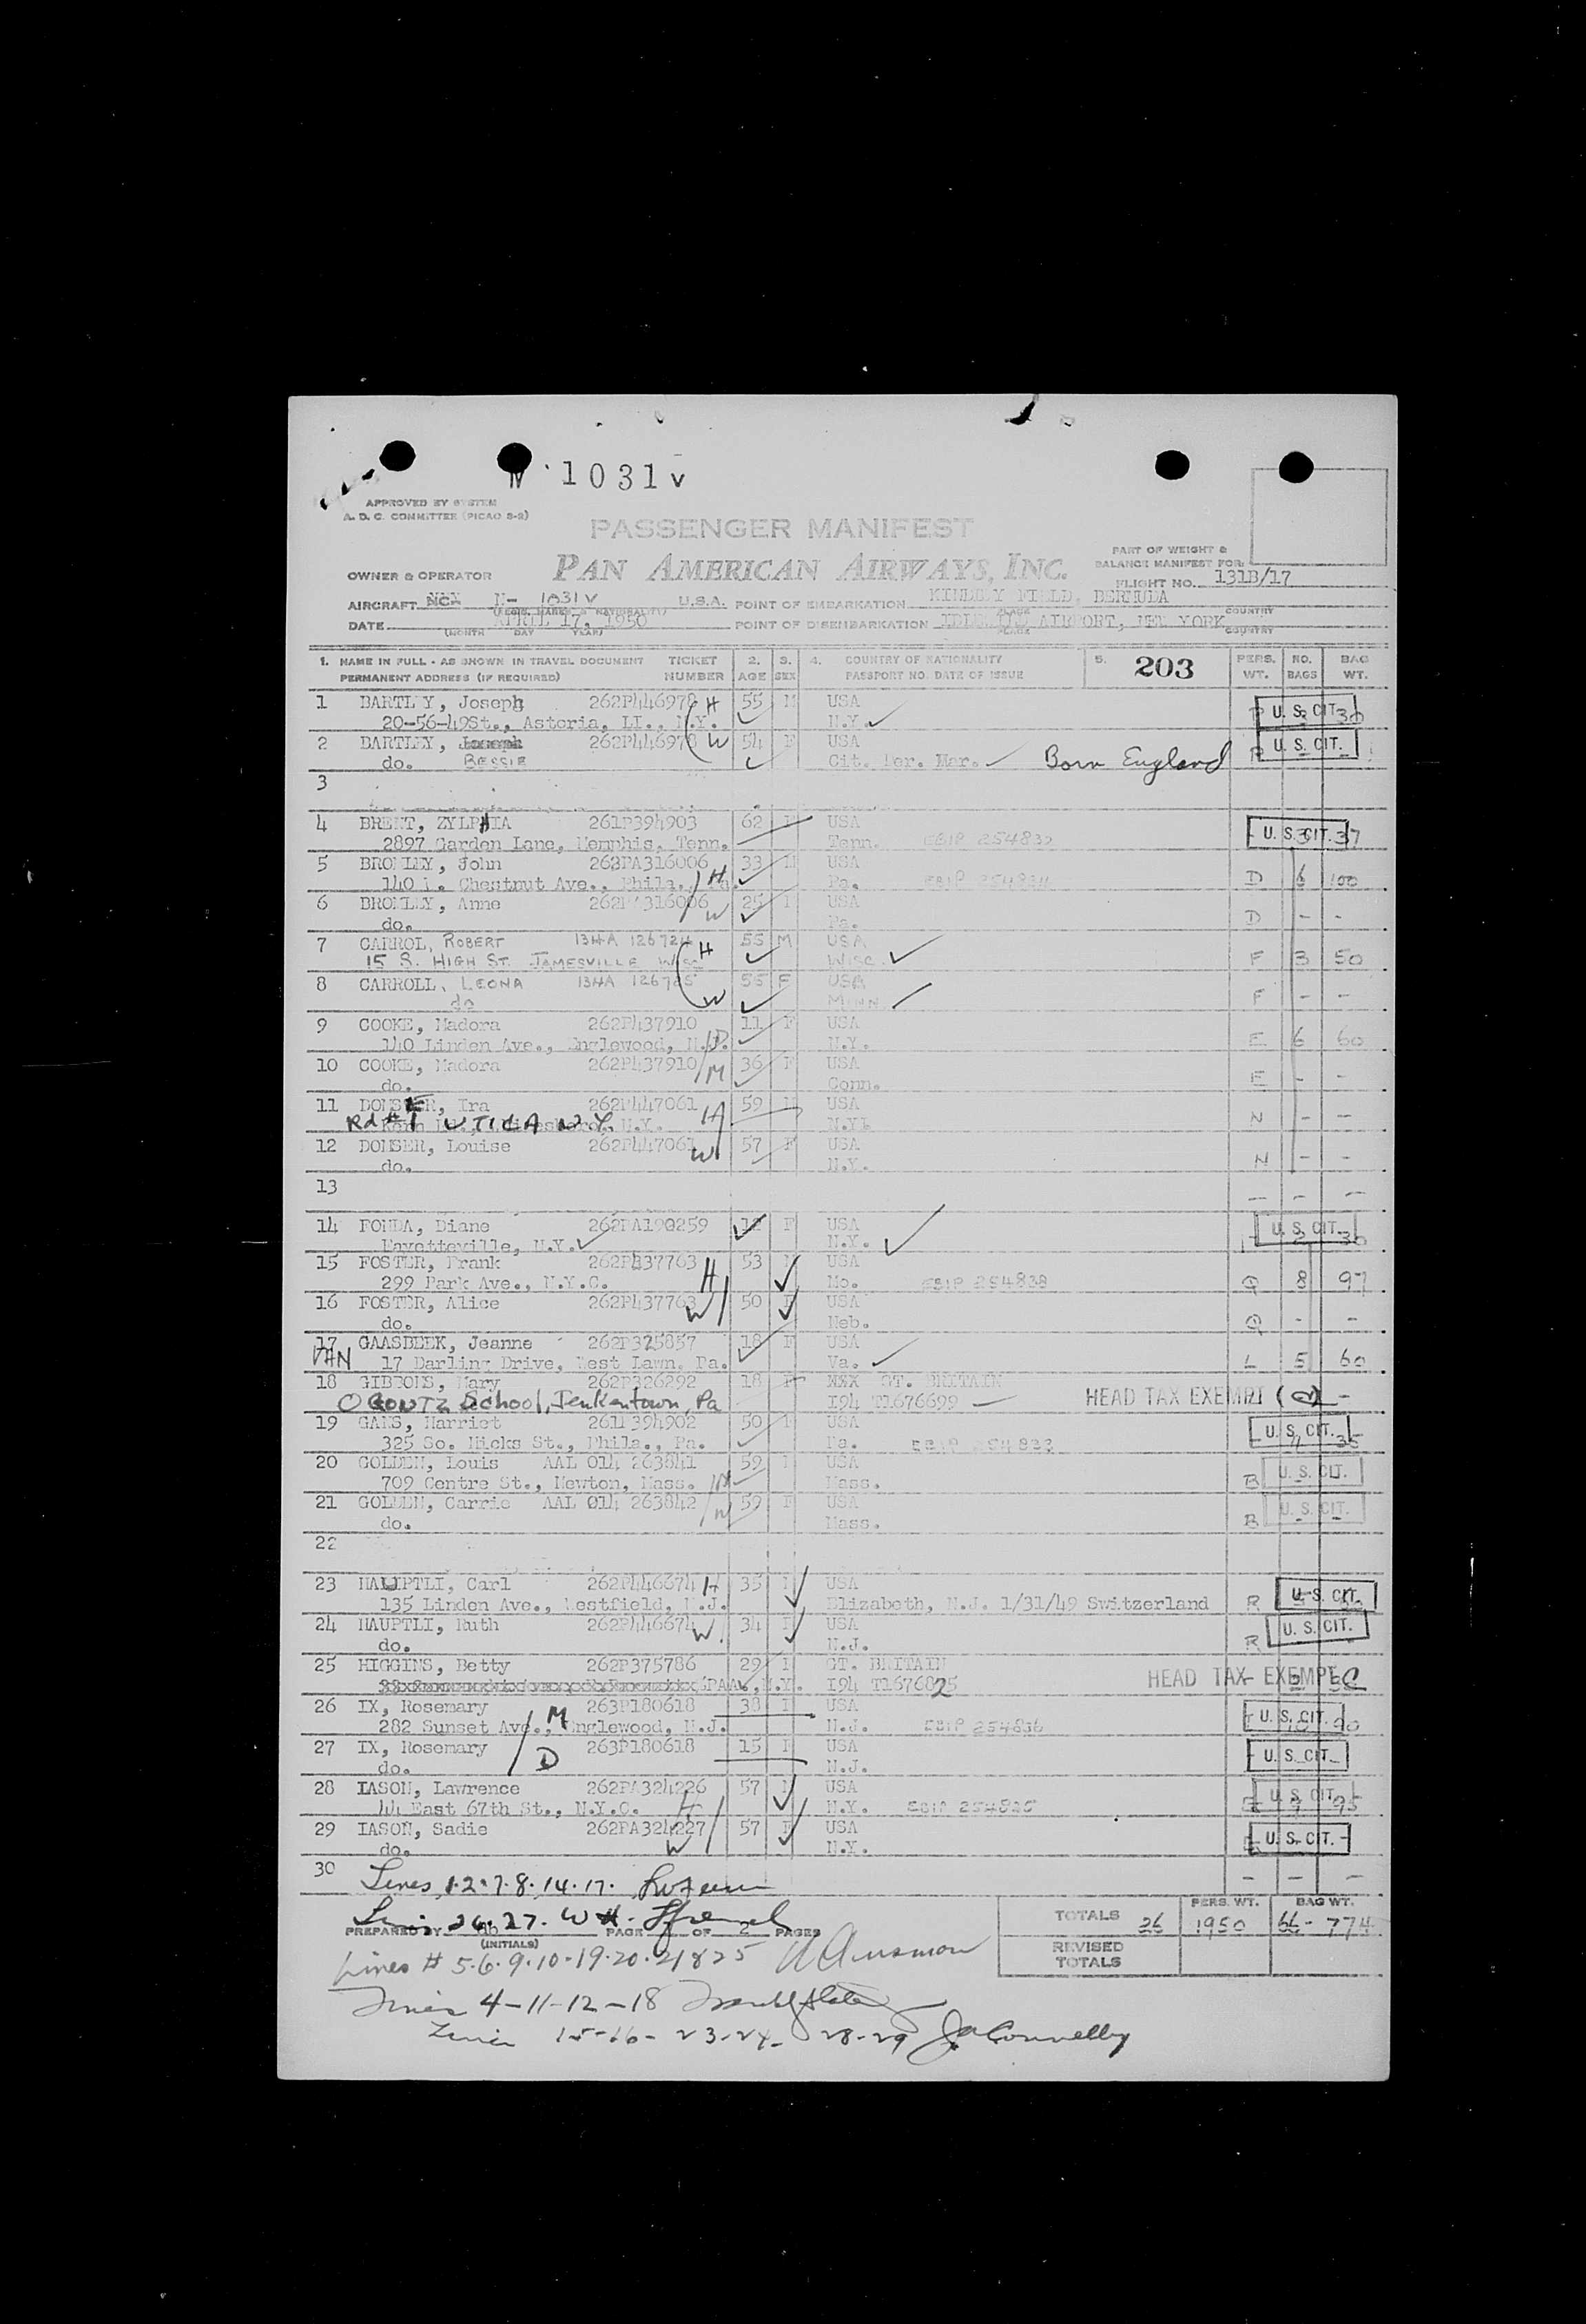 N 1031 V
APPROVED BY SYSTEM
A. D. C. COMMITTEE (PICAO 8-2)
PASSENGER MANIFEST
PAN AMERICAN AIRWAYS, INC.
PART OF WEIGHT &
BALANCE MANIFEST FOR:
OWNER & OPERATOR
FLIGHT NO. 131B/17
AIRCRAFT N- 1031V U.S.A. POINT OF EMBARKATION KINDLEY FIELD, BERMUDA
(REGIS. MARKS & NATIONALITY) PLACE COUNTRY
DATE APRIL 17, 1950 POINT OF DISEMBARKATION IDLEWILD AIRPORT, NEW YORK
(MONTH DAY YEAR) PLACE COUNTRY
1. NAME IN FULL - AS SHOWN IN TRAVEL DOCUMENT TICKET 2. 3. 4. COUNTRY OF NATIONALITY 5. 203 PERS. NO. BAG
PERMANENT ADDRESS (IF REQUIRED) NUMBER AGE SEX PASSPORT NO. DATE OF ISSUE WT. BAGS WT.
1 BARTLEY, Joseph 262P446978 H 55 M USA U. S. CIT. 30
20-56-49St., Astoria, LI., N.Y. N.Y.
2 BARTLEY, Joseph 262P446978 W 54 F USA U. S. CIT.
do. BESSIE Cit. Per. Mar. Born England
3
4 BRENT, ZYLPHIA 261P394903 62 F USA U. S. CIT. 37
2897 Garden Lane, Memphis, Tenn. Tenn. EBIP 254832
5 BROMLEY, John 262PA316006 33 M USA
140 W. Chestnut Ave., Phila., Pa. H Pa. EBIP 254834 D 6 100
6 BROMLEY, Anne 262PA316006 W 25 F USA
do. Pa. D - -
7 CARROL, ROBERT 134A 126724 H 55 M USA
15 S. HIGH ST. JAMESVILLE WISC WISC. F 3 50
8 CARROLL, LEONA 134A 126725 W 55 F USA
do MINN F - -
9 COOKE, Madora 262P437910 11 F USA
140 Linden Ave., Englewood, N.J. D N.Y. E 6 60
10 COOKE, Madora 262P437910 M 36 F USA
do. Conn. E - -
11 DONSER, Ira 262P447061 H 59 M USA
Rd #1 UTICA N.Y. N.Y. N - -
12 DONSER, Louise 262P447061 W 57 F USA
do. N.Y. N - -
13 - - -
14 FONDA, Diane 262PA190259 12 F USA U. S. CIT.
Fayetteville, N.Y. N.Y. 30
15 FOSTER, Frank 262P437763 H 53 M USA
299 Park Ave., N.Y.C. Mo. EBIP 254838 Q 8 97
16 FOSTER, Alice 262P437763 W 50 F USA
do. Neb. Q - -
17 GAASBEEK, Jeanne 262P325857 18 F USA
VAN 17 Darling Drive, West Lawn. Pa. Va. L 5 60
18 GIBBONS, Mary 262P326292 18 F GT. BRITAIN
OGONTZ School, Jenkentown, Pa I94 T1676699 HEAD TAX EXEMPT
19 GANS, Harriet 261P394902 50 F USA U. S. CIT.
325 So. Hicks St., Phila., Pa. Pa. EBIP 254833 35
20 GOLDEN, Louis AAL 014 263841 59 M USA U. S. CIT.
709 Centre St., Newton, Mass. H Mass. B
21 GOLDEN, Carrie AAL 014 263842 W 59 F USA U. S. CIT.
do. Mass. B - -
22
23 HAUPTLI, Carl 262P446674 H 35 M USA U. S. CIT.
135 Linden Ave., Westfield, N.J. Elizabeth, N.J. 1/31/49 Switzerland R
24 HAUPTLI, Ruth 262P446674 W 34 F USA U. S. CIT.
do. N.J. R
25 HIGGINS, Betty 262P375786 29 F GT. BRITAIN HEAD TAX EXEMPT
PAA., N.Y. I94 T1676825
26 IX, Rosemary 263P180618 M 38 F USA U. S. CIT.
282 Sunset Ave., Englewood, N.J. N.J. EBIP 254836 90
27 IX, Rosemary 263P180618 D 15 F USA U. S. CIT.
do. N.J.
28 IASON, Lawrence 262PA324226 57 M USA U. S. CIT.
44 East 67th St., N.Y.C. H N.Y. EBIP 254835 95
29 IASON, Sadie 262PA324227 57 F USA U. S. CIT.
do. W N.Y.
30 Lines 1.2.7.8.14.17. - - -
26.27.
PREPARED BY PAGE OF 2 PAGES
(INITIALS)
TOTALS 26 PERS. WT. 1950 BAG WT. 66- 774
REVISED TOTALS
Lines # 5.6.9.10.19.20.21 & 25
Lines 4-11-12-18
Lines 15-16-23-24-28-29 Connelly